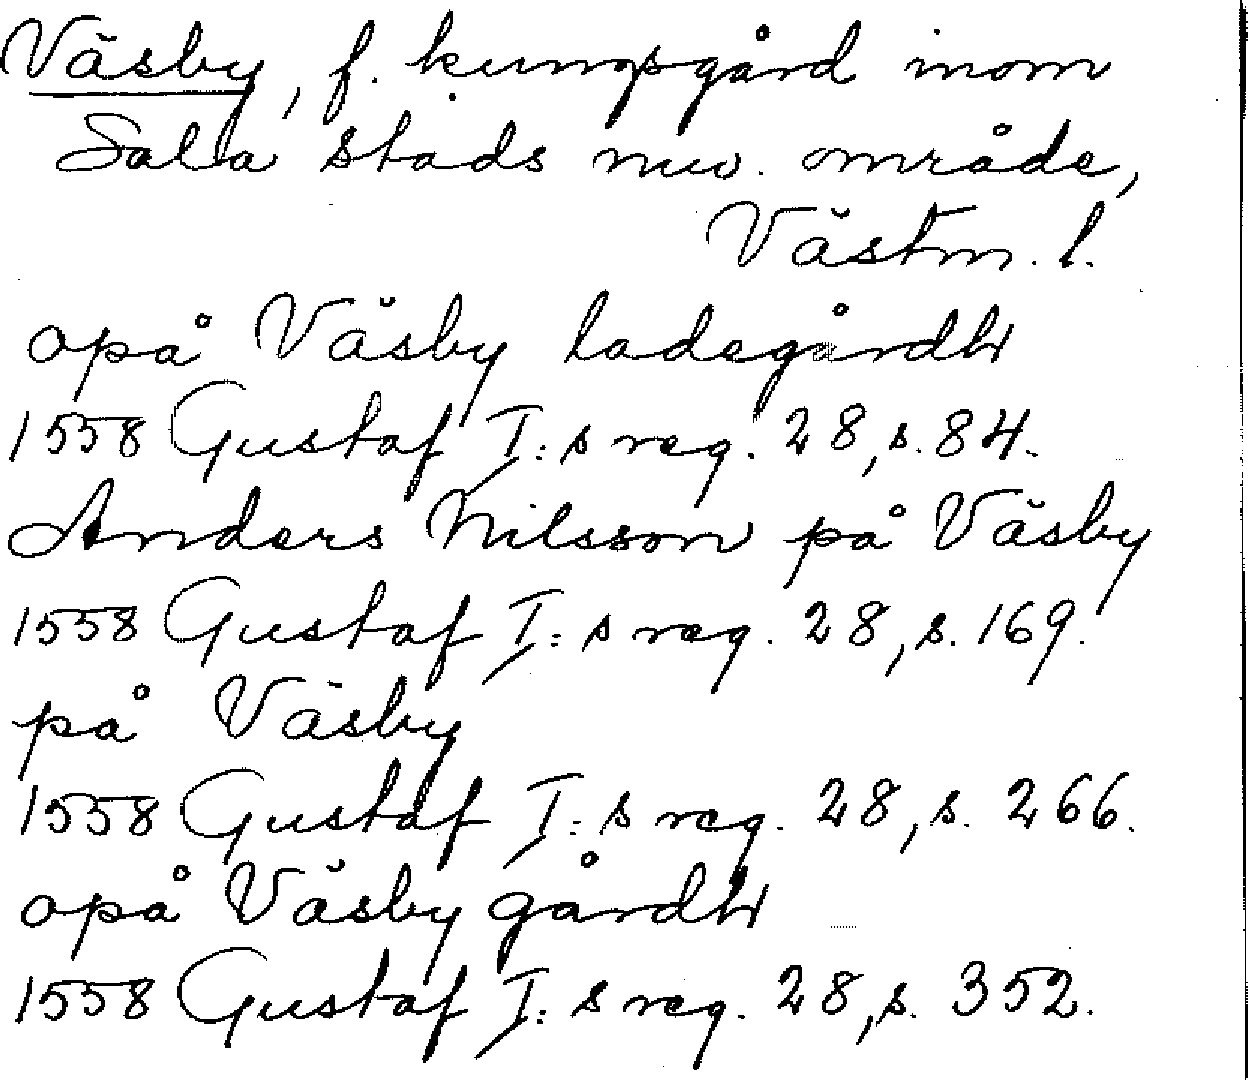 Väsby, f. kungsgård inom
Sala stads nuv. område,
Västm. l.
opå Väsby ladegårdh
1558 Gustaf I:s reg. 28, s. 84.
Anders Nilsson på Väsby
1558 Gustaf I:s reg. 28, s. 169.
på Väsby
1558 Gustaf I:s reg. 28, s. 266.
opå Väsby gårdh
1558 Gustaf I:s reg. 28, s. 352.